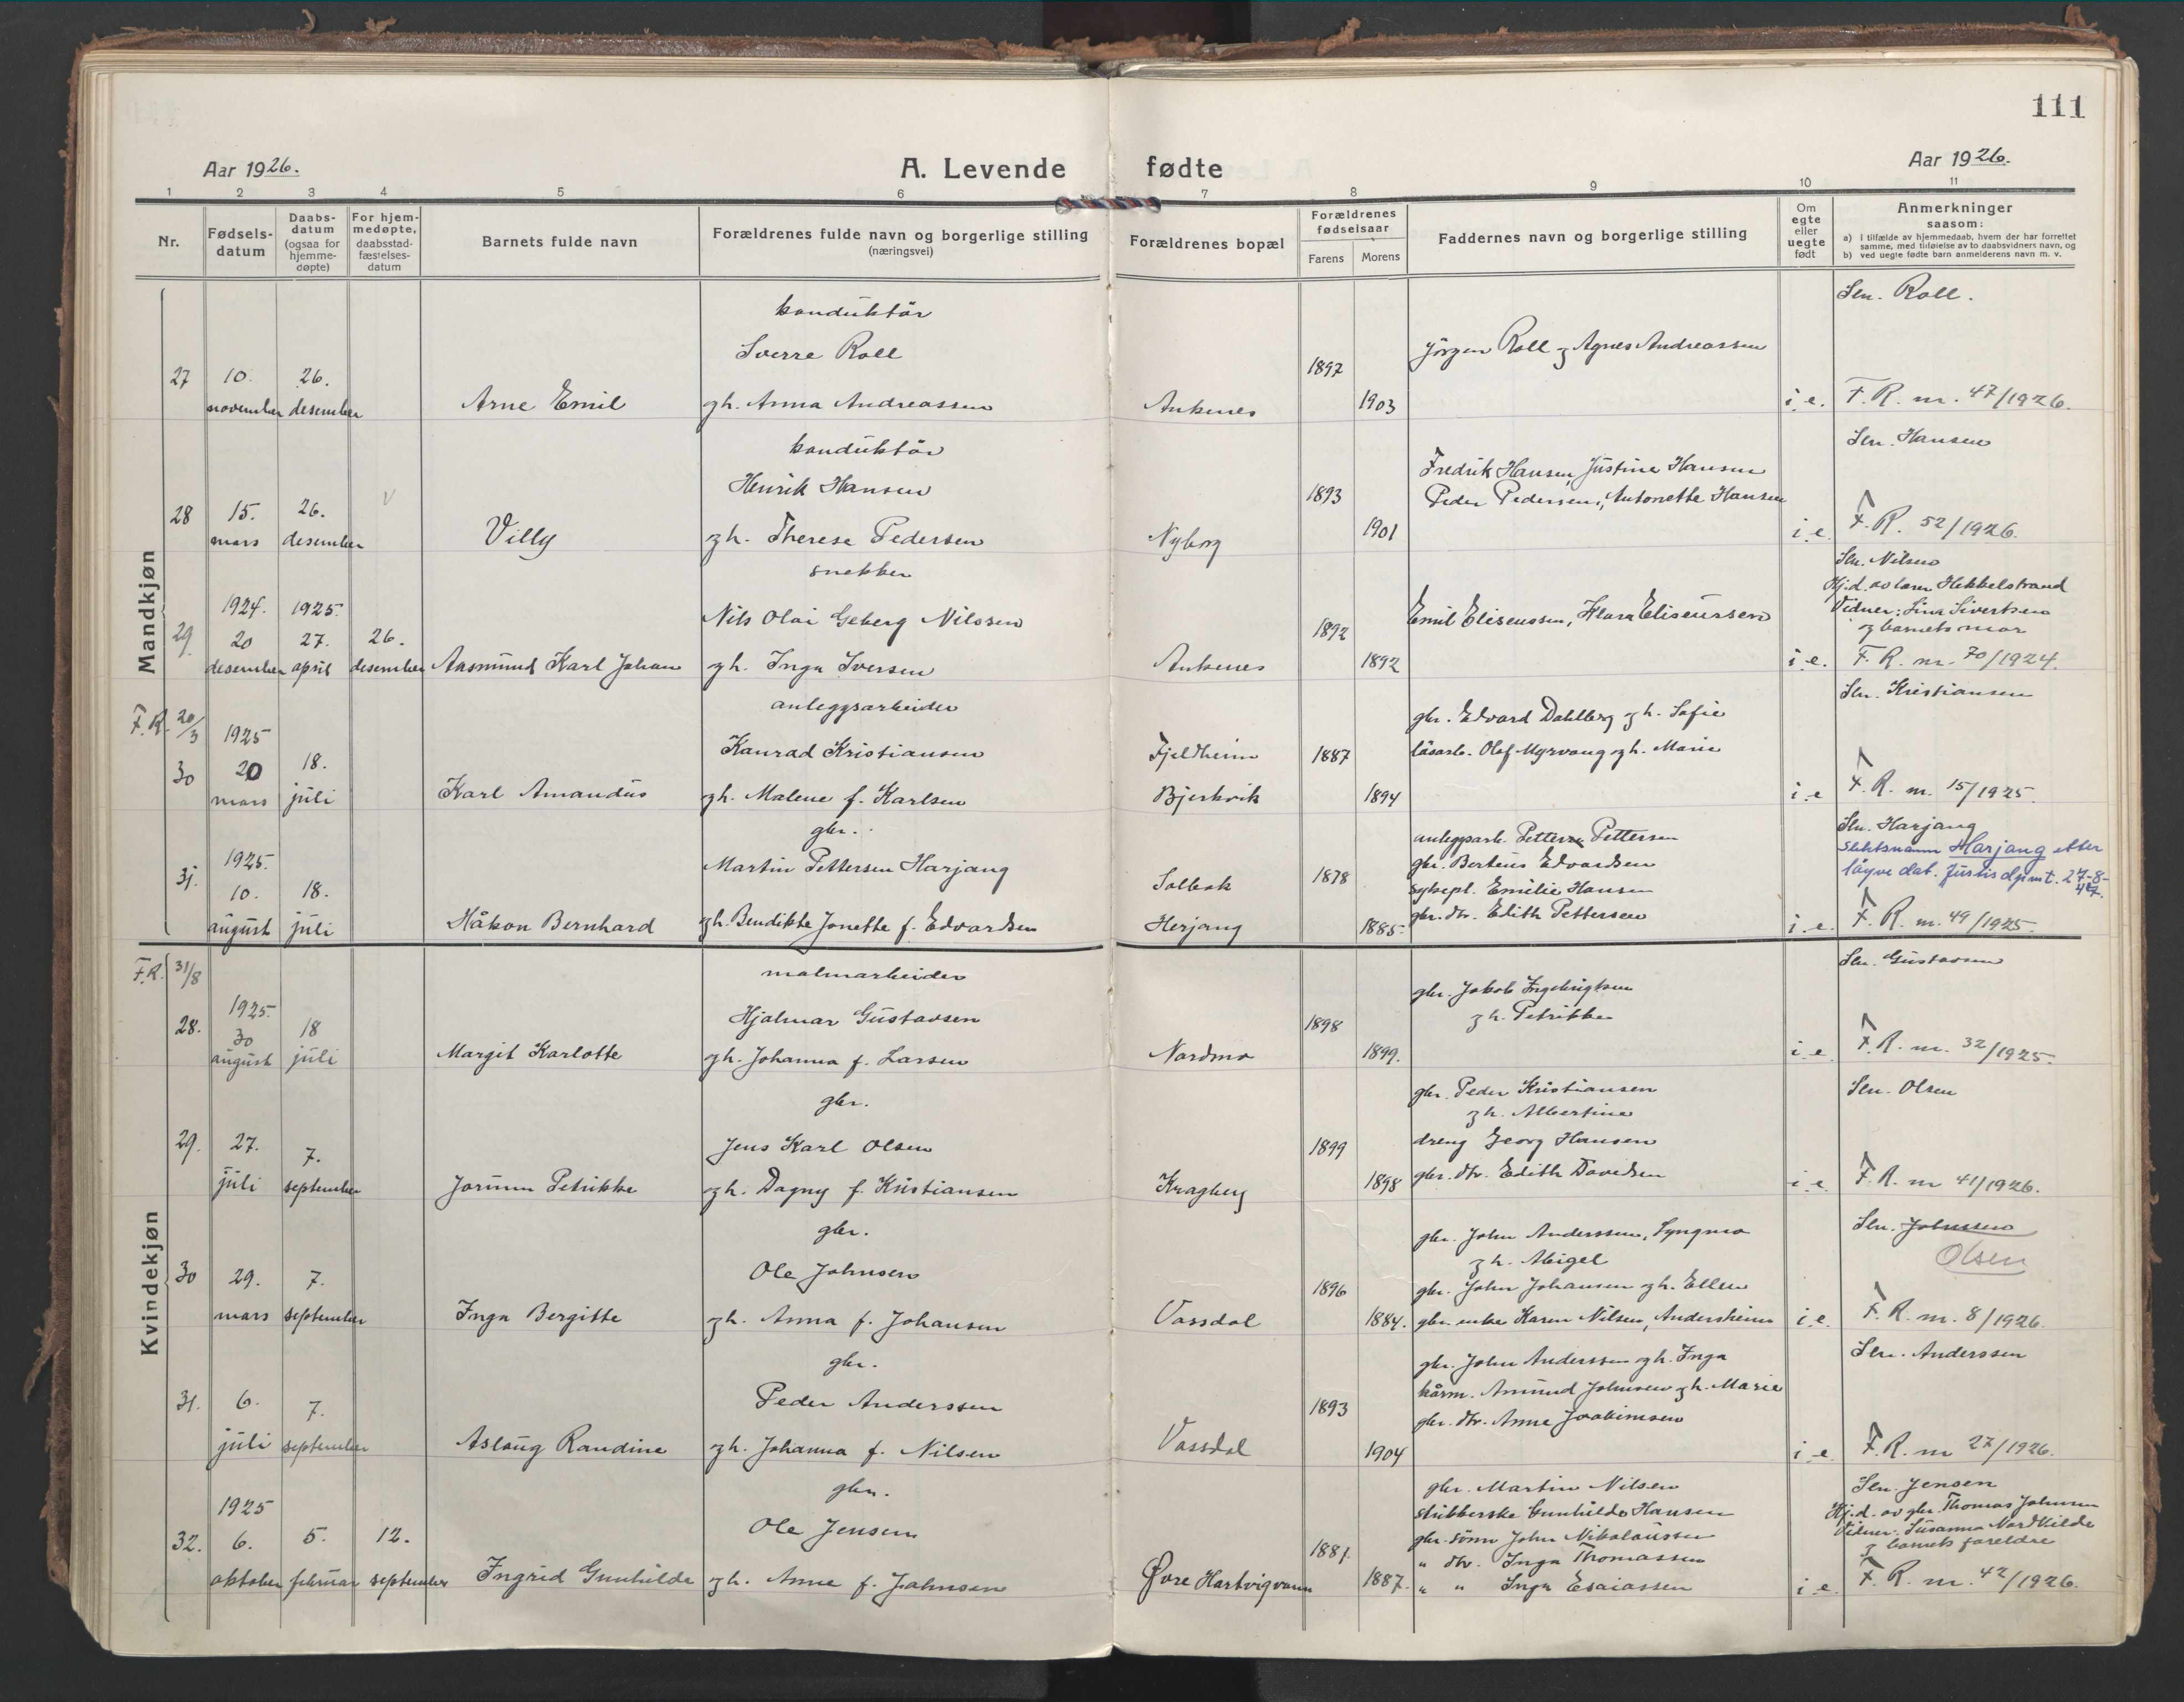 111
Aar 1926.
A. Levende fødte
Aar 1926.
1 2 3 4 5 6 7 8 9 10 11
Nr.
Fødsels-
datum
Daabs-
datum
(ogsaa for
hjemme-
døpte)
For hjem-
medøpte,
daabsstad-
fæstelses-
datum
Barnets fulde navn
Forældrenes fulde navn og borgerlige stilling
(næringsvei)
Forældrenes bopæl
Forældrenes
fødselsaar
Farens Morens
Faddernes navn og borgerlige stilling
Om
egte
eller
uegte
født
Anmerkninger
saasom:
a) i tilfælde av hjemmedaab, hvem der har forrettet
samme, med tilføielse av to daabsvidners navn, og
b) ved uegte fødte barn anmelderens navn m. v.
Mandkjøn
konduktör
Sverre Roll
27 10. november 26. desember
Arne Emil
gh. Anna Andreassen
Ankenes
1897
1903
Jörgen Roll g Agnes Andreassen
i. e.
Sln. Roll.
F. R. nr. 47/1926.
konduktör
Henrik Hansen
28 15. mars 26. desember
V
Villy
gh. Therese Pedersen
Nyborg
1893
1901
Fredrik Hansen, Justine Hansen
Peder Pedersen, Antonette Hansen
i. e.
Sln. Hansen
F. R. 52/1926.
snekker
Nils Olai Geberg Nilssen
29 1924. 20 desember 1925. 27. april 26. desember
Aasmund Karl Johan
gh. Inga Iversen
Ankenes
1892
1892
Emil Eliseussen, Klara Eliseussen
i. e.
Sln. Nilsen
Hj.d. av lærer Hekkelstrand
Vidner: Lina Sivertsen
og barnets mor
F. R. nr. 70/1924.
anleggsarbeider
Konrad Kristiansen
F.R. 20/3
30 1925 20 mars 18. juli
Karl Amandus
gh. Malene f. Karlsen
Fjeldheim
Bjerkvik
1887
1894
gbr. Edvard Dahlberg gh. Sofie
lösarb. Olaf Myrvang gh. Marie
i. e
Sln. Kristiansen
F. R. nr. 15/1925.
gbr.
Martin Pettersen Harjang
31. 1925. 10. august 18. juli
Håkon Bernhard
gh. Bendikte Jonette f. Edvardsen
Solbak
Herjang
1878
1885.
anleggsarb. Petter Pettersen
gbr. Berteus Edvardsen
sykepl. Emilie Hansen
gbr. dtr. Edith Pettersen
i. e.
Sln. Harjang
Slektsnavn Harjang etter
löyve dat. Justisdpmt. 27-8-
47.
F. R. nr. 49/1925.
Kvindekjøn
F.R. 31/8
malmarbeider
Hjalmar Gustavsen
28. 1925. 30 august 18 juli
Margit Karlotte
gh. Johanna f. Larsen
Nordmo
1898
1899.
gbr. Jakob Ingebrigtsen
gh. Petrikke
i. e.
Sln. Gustavsen
F. R. nr. 32/1925.
gbr.
Jens Karl Olsen
29. 27. juli 7. september
Jorunn Petrikke
gh. Dagny f. Kristiansen
Kragberg
1899
1898
gbr. Peder Kristiansen
gh. Albertine
dreng Georg Hansen
gbr. dtr. Edith Davidsen
i. e.
Sln. Olsen
F. R. nr 41/1926.
gbr.
Ole Johnsen
30 29. mars 7. september
Inga Bergitte
gh. Anna f. Johansen
Vassdal
1896
1884.
gbr. John Anderssen, Lyngmo
gh. Abigel
gbr. John Johansen gh. Ellen
gbr. enke Karen Nilsen, Andersheim
i. e.
Sln. Johnssen
Olsen
F. R. nr. 8/1926.
gbr.
Peder Anderssen
31. 6. juli 7. september
Aslaug Randine
gh. Johanna f. Nilsen
Vassdal
1893
1904
gbr. John Anderssen gh. Inga
kårm. Amund Johnsen gh. Marie
gbr. dtr. Anne Joakimsen
i. e.
Sln. Anderssen
F. R. nr 27/1926.
gbr.
Ole Jensen
32. 1925 6. oktober 5. februar 12. september
Ingrid Gunhilde
gh. Anne f. Johnsen
Øvre Hartvigvann
1881.
1887.
gbr. Martin Nilsen
stribberske Gunhilde Hansen
gbr. sönn John Nikolaussen
" dtr. Inga Thomassen
" " Inga Esaiassen
i. e.
Sln. Jensen
Hj.d. av gbr. Thomas Johnsen
Vidner: Susanna Nordkilde
g barnets foreldre
F. R. nr. 42/1926.